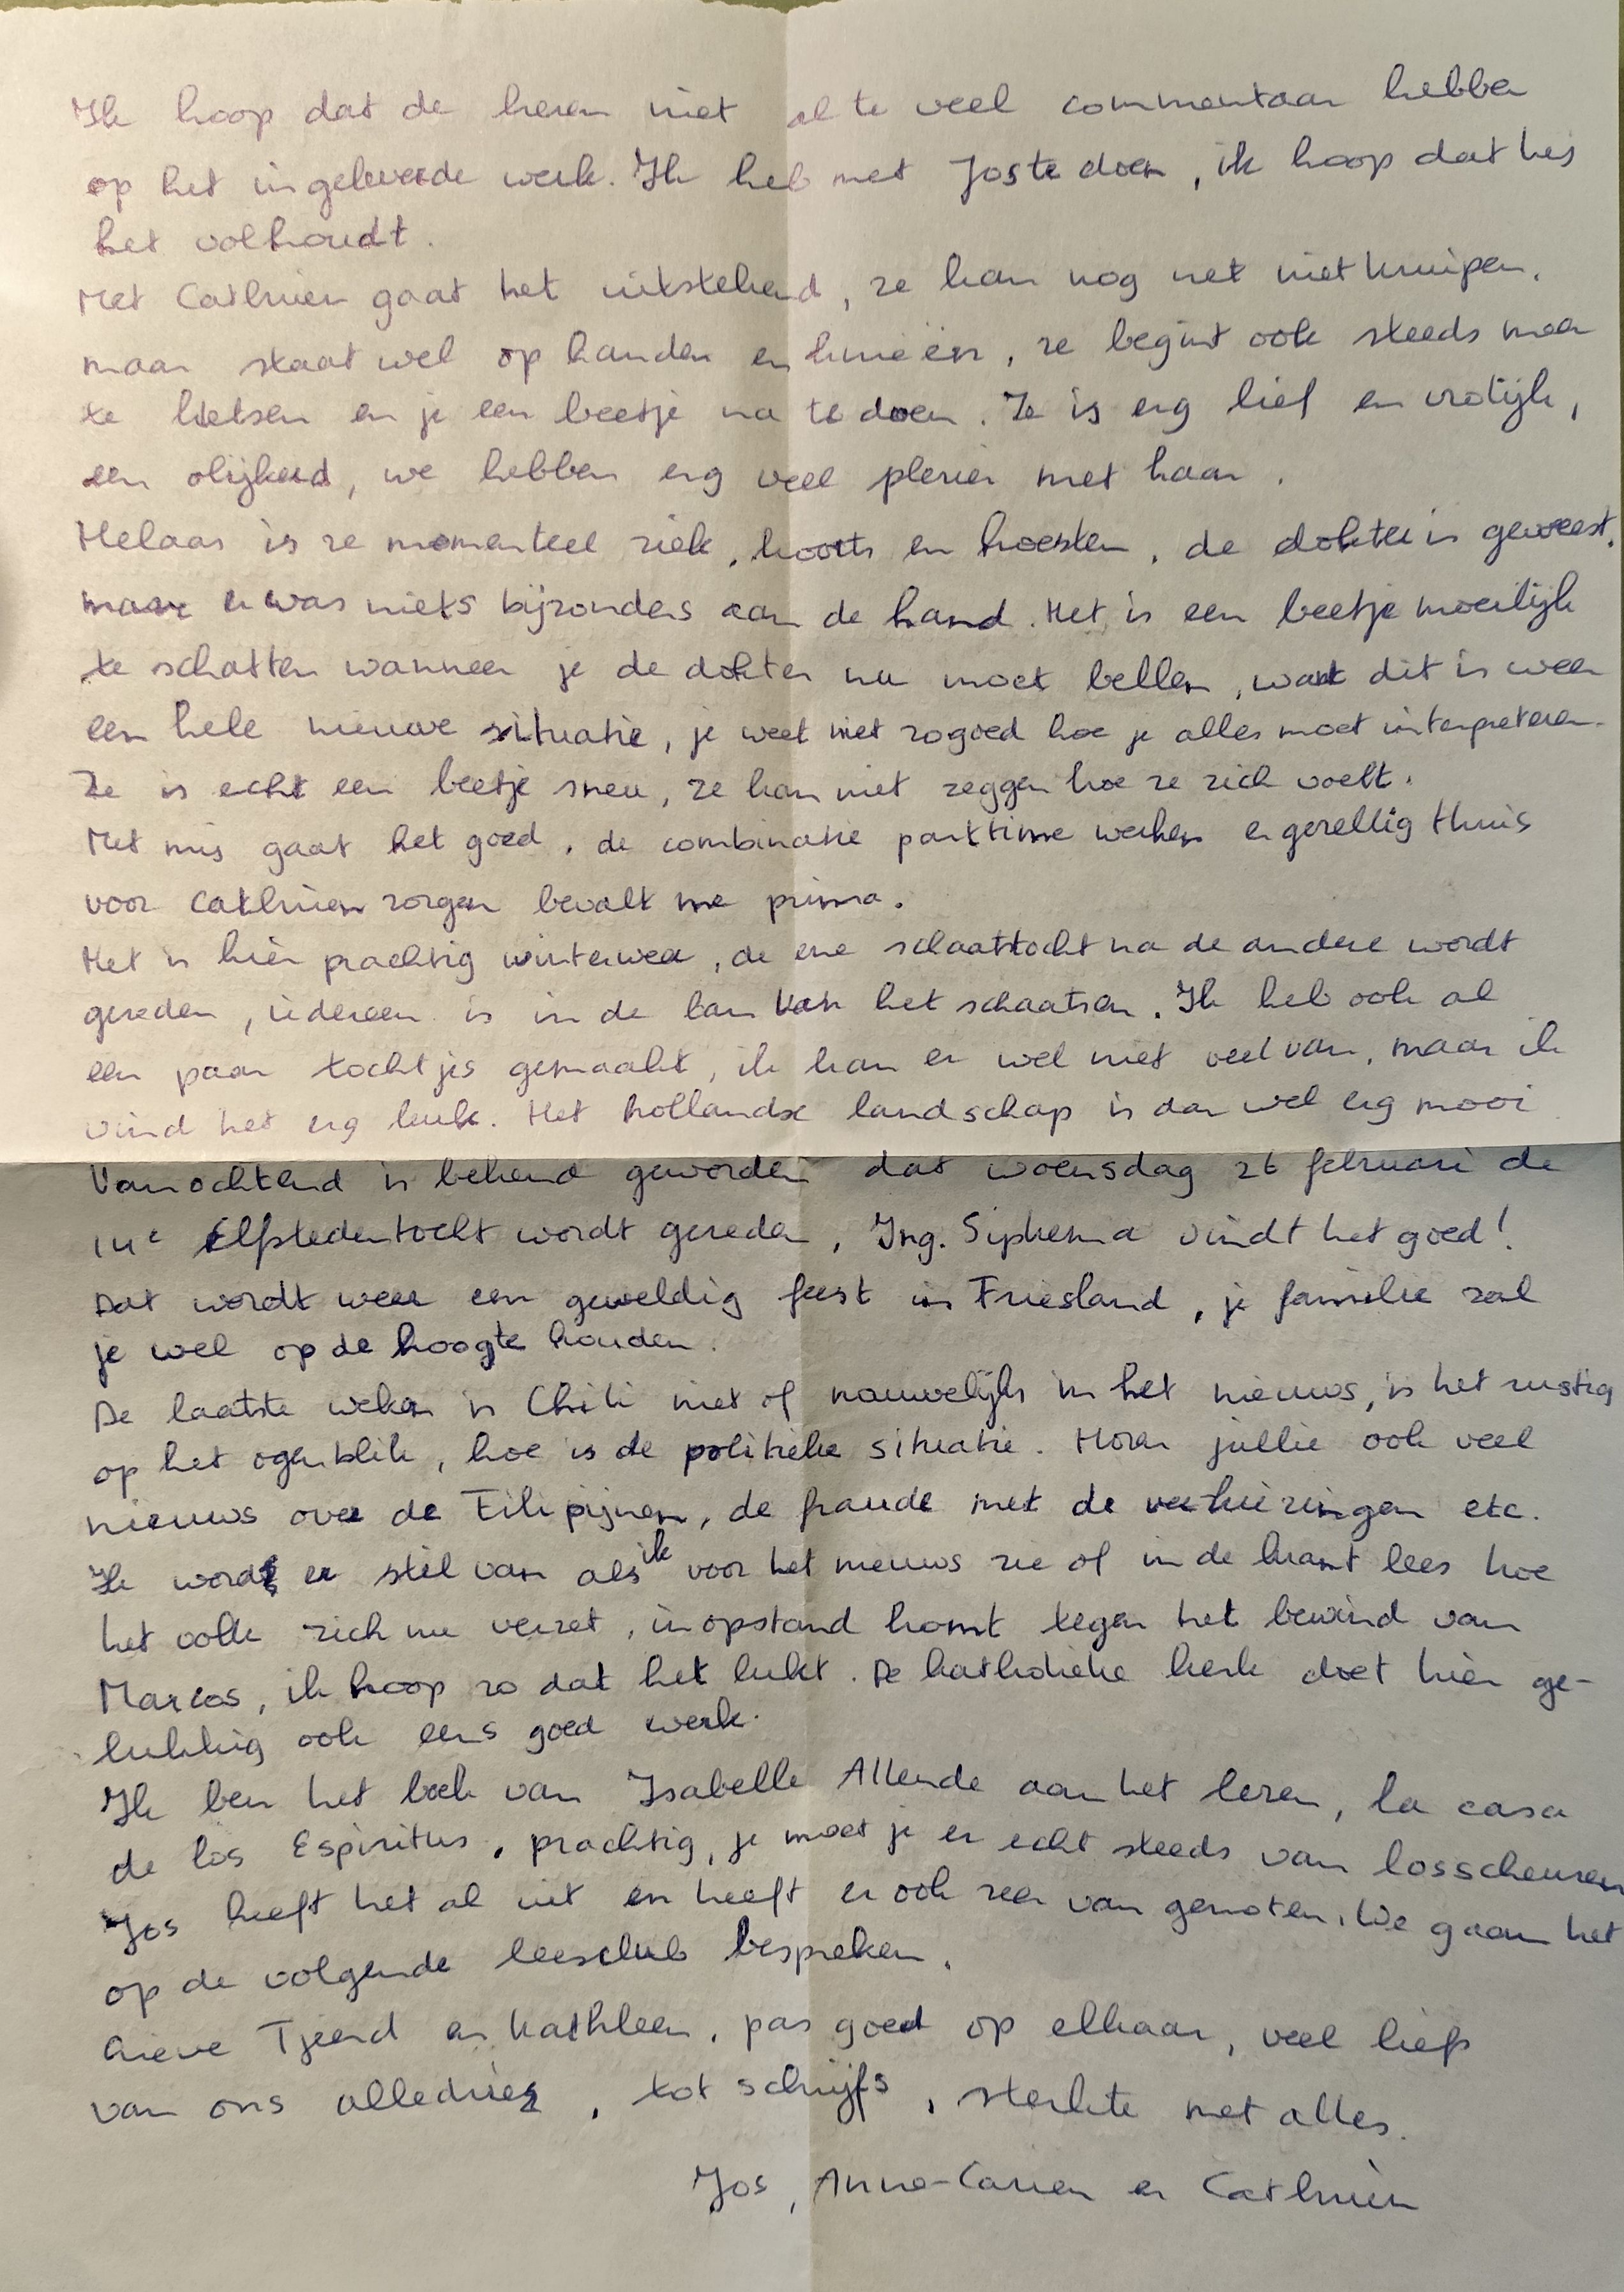 Ik hoop dat de heren niet al te veel commentaar hebben
op het ingeleverde werk. Ik heb met Jos te doen, ik hoop dat hij
het volhoudt.
Met Cathrien gaat het uitstekend, ze kan nog net niet kruipen,
maar staat wel op handen en knieën, ze begint ook steeds meer
te kletsen en je een beetje na te doen. Ze is erg lief en vrolijk,
een olijkerd, we hebben erg veel plezier met haar.
Helaas is ze momenteel ziek, koorts en hoesten, de dokter is geweest,
maar er was niets bijzonders aan de hand. Het is een beetje moeilijk
te schatten wanneer je de dokter nu moet bellen, want dit is weer
een hele nieuwe situatie, je weet niet zo goed hoe je alles moet interpreteren.
Ze is echt een beetje sneu, ze kan niet zeggen hoe ze zich voelt.
Met mij gaat het goed, de combinatie parttime werken en gezellig thuis
voor Cathrien zorgen bevalt me prima.
Het is hier prachtig winterweer, de ene schaatstocht na de andere wordt
gereden, iedereen is in de ban van het schaatsen. Ik heb ook al
een paar tochtjes gemaakt, ik kan er wel niet veel van, maar ik
vind het erg leuk. Het hollandse landschap is dan wel erg mooi
Vanochtend is bekend geworden dat woensdag 26 februari de
14e Elfstedentocht wordt gereden, Ing. Sipkema vindt het goed!
Dat wordt weer een geweldig feest in Friesland, je familie zal
je wel op de hoogte houden.
De laatste weken is Chili niet of nauwelijks in het nieuws, is het rustig
op het ogenblik, hoe is de politieke situatie. Horen jullie ook veel
nieuws over de Filipijnen, de fraude met de verkiezingen etc.
Ik word er stil van als ik voor het nieuws zie of in de krant lees hoe
het volk zich nu verzet, in opstand komt tegen het bewind van
Marcos, ik hoop zo dat het lukt. De katholieke kerk doet hier ge-
lukkig ook eens goed werk.
Ik ben het boek van Isabelle Allende aan het lezen, la casa
de los Espiritus, prachtig, je moet je er echt steeds van losscheuren
Jos heeft het al uit en heeft er ook zeer van genoten. We gaan het
op de volgende leesclub bespreken.
Lieve Tjeerd en Kathleen, pas goed op elkaar, veel liefs
van ons alledrie, tot schrijfs, sterkte met alles.
Jos, Anne-Carien en Cathrien